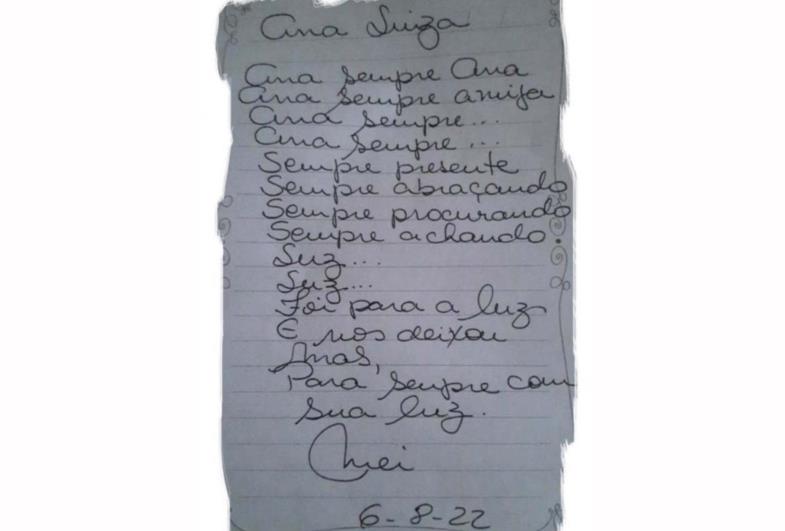 Ana Luiza
Ana sempre Ana
Ana sempre amiga
Ana sempre...
Ana sempre...
Sempre presente
Sempre abraçando
Sempre procurando
Sempre achando.
Luz...
Luz...
Foi para a luz
E nos deixou
Anas,
Para sempre com
sua luz.
6-8-22